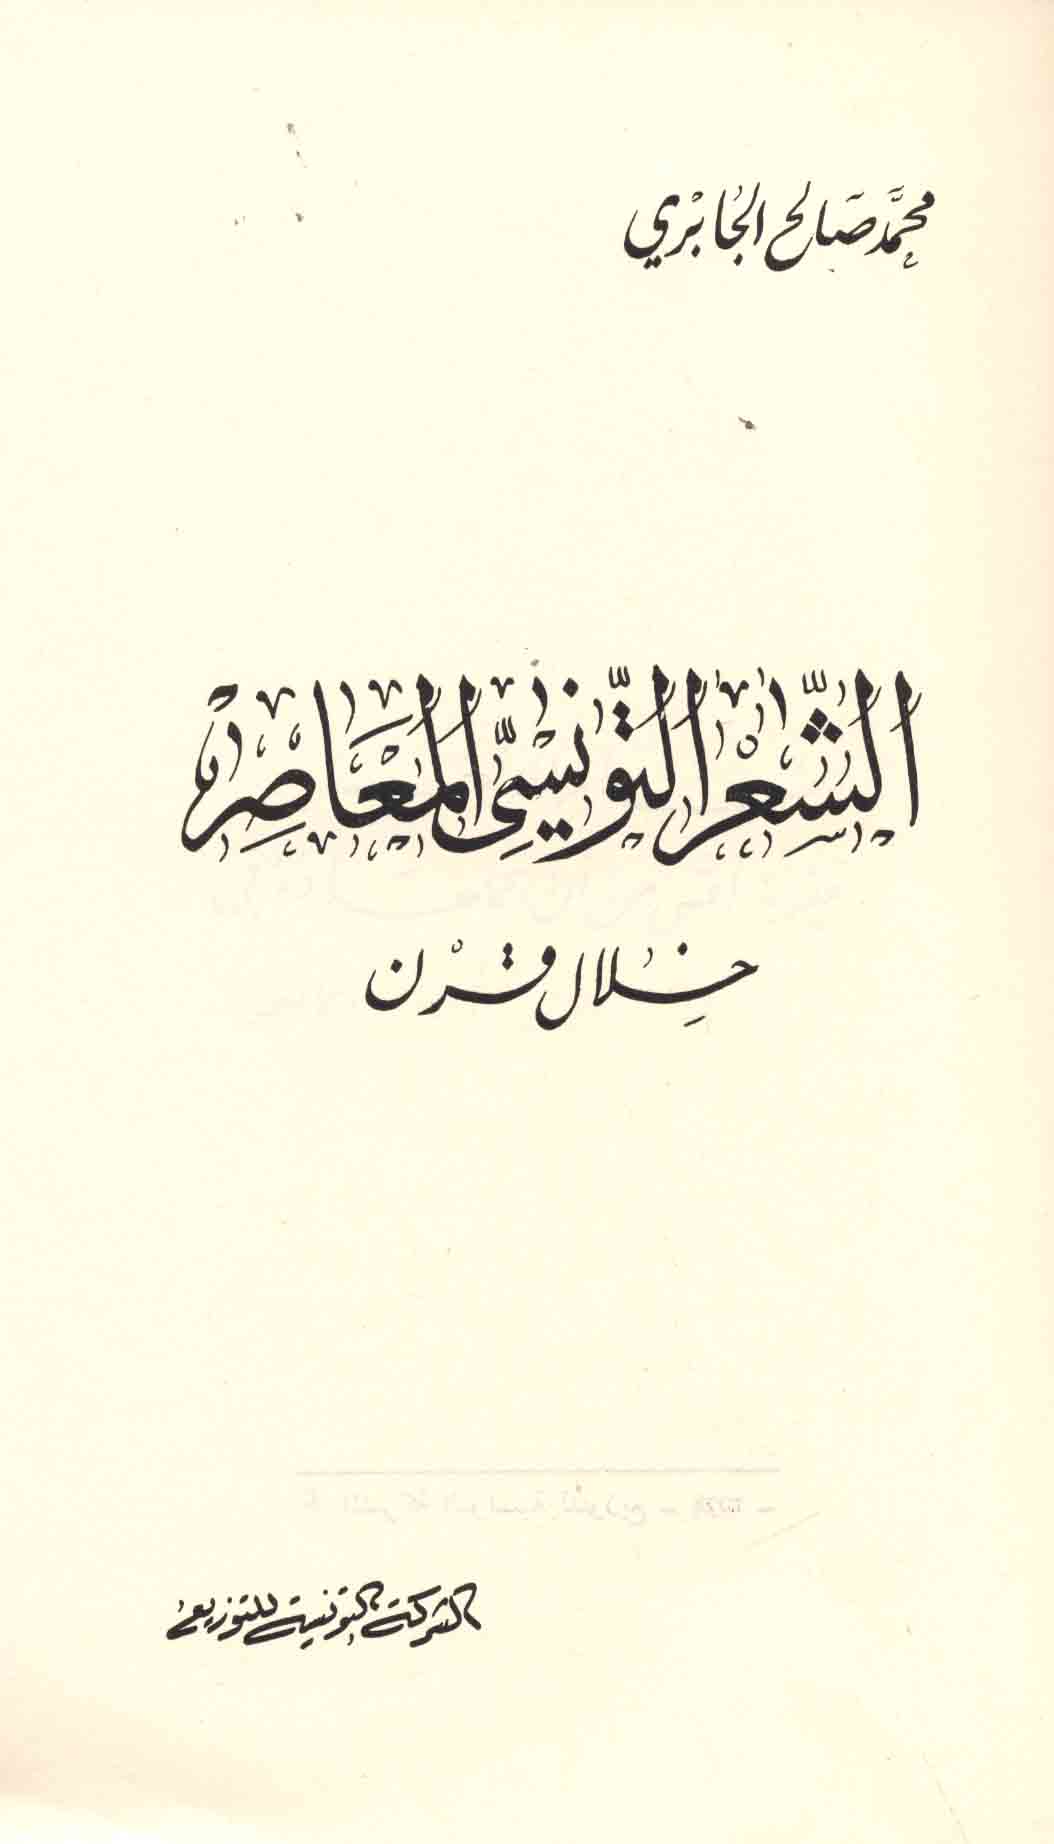 محمَّد صَالح الجُابْري
الشِّعْرُ التُّونِسِيُّ المُعَاصِرْ
خِلال قرْن
الشركة التونسية للتوزيع